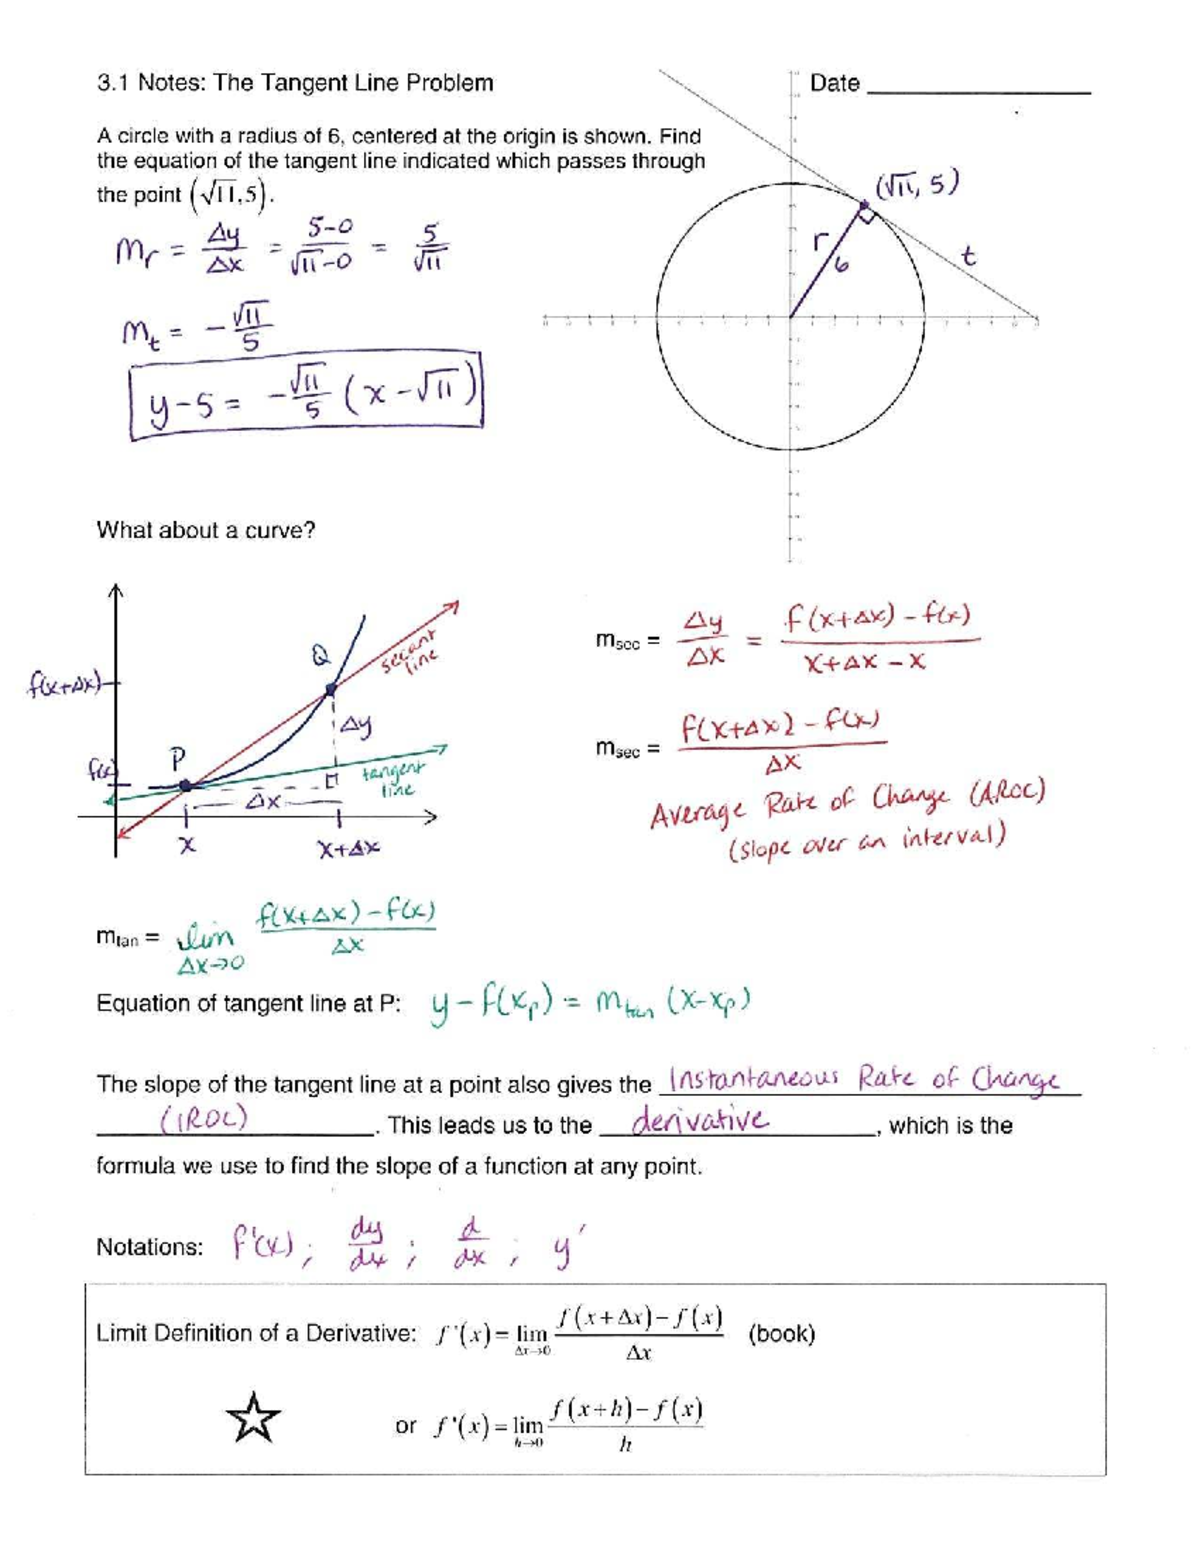 3.1 Notes: The Tangent Line Problem
Date
A circle with a radius of 6, centered at the origin is shown. Find
the equation of the tangent line indicated which passes through
the point (√11,5).
(√11, 5)
r
6
t
m_r = Δy/Δx = 5-0/√11-0 = 5/√11
m_t = -√11/5
y-5 = -√11/5 (x-√11)
What about a curve?
Q
secant line
f(x+Δx)
Δy
P
f(x)
tangent line
Δx
x
x+Δx
m_sec = Δy/Δx = f(x+Δx)-f(x)/x+Δx-x
m_sec = f(x+Δx)-f(x)/Δx
Average Rate of Change (AROC)
(slope over an interval)
m_tan = lim Δx→0 f(x+Δx)-f(x)/Δx
Equation of tangent line at P: y-f(x_p) = m_tan (x-x_p)
The slope of the tangent line at a point also gives the Instantaneous Rate of Change
(IROC). This leads us to the derivative, which is the
formula we use to find the slope of a function at any point.
Notations: f'(x); dy/dx; d/dx; y'
Limit Definition of a Derivative: f'(x)= lim Δx→0 f(x+Δx)-f(x)/Δx (book)
or f'(x)= lim h→0 f(x+h)-f(x)/h